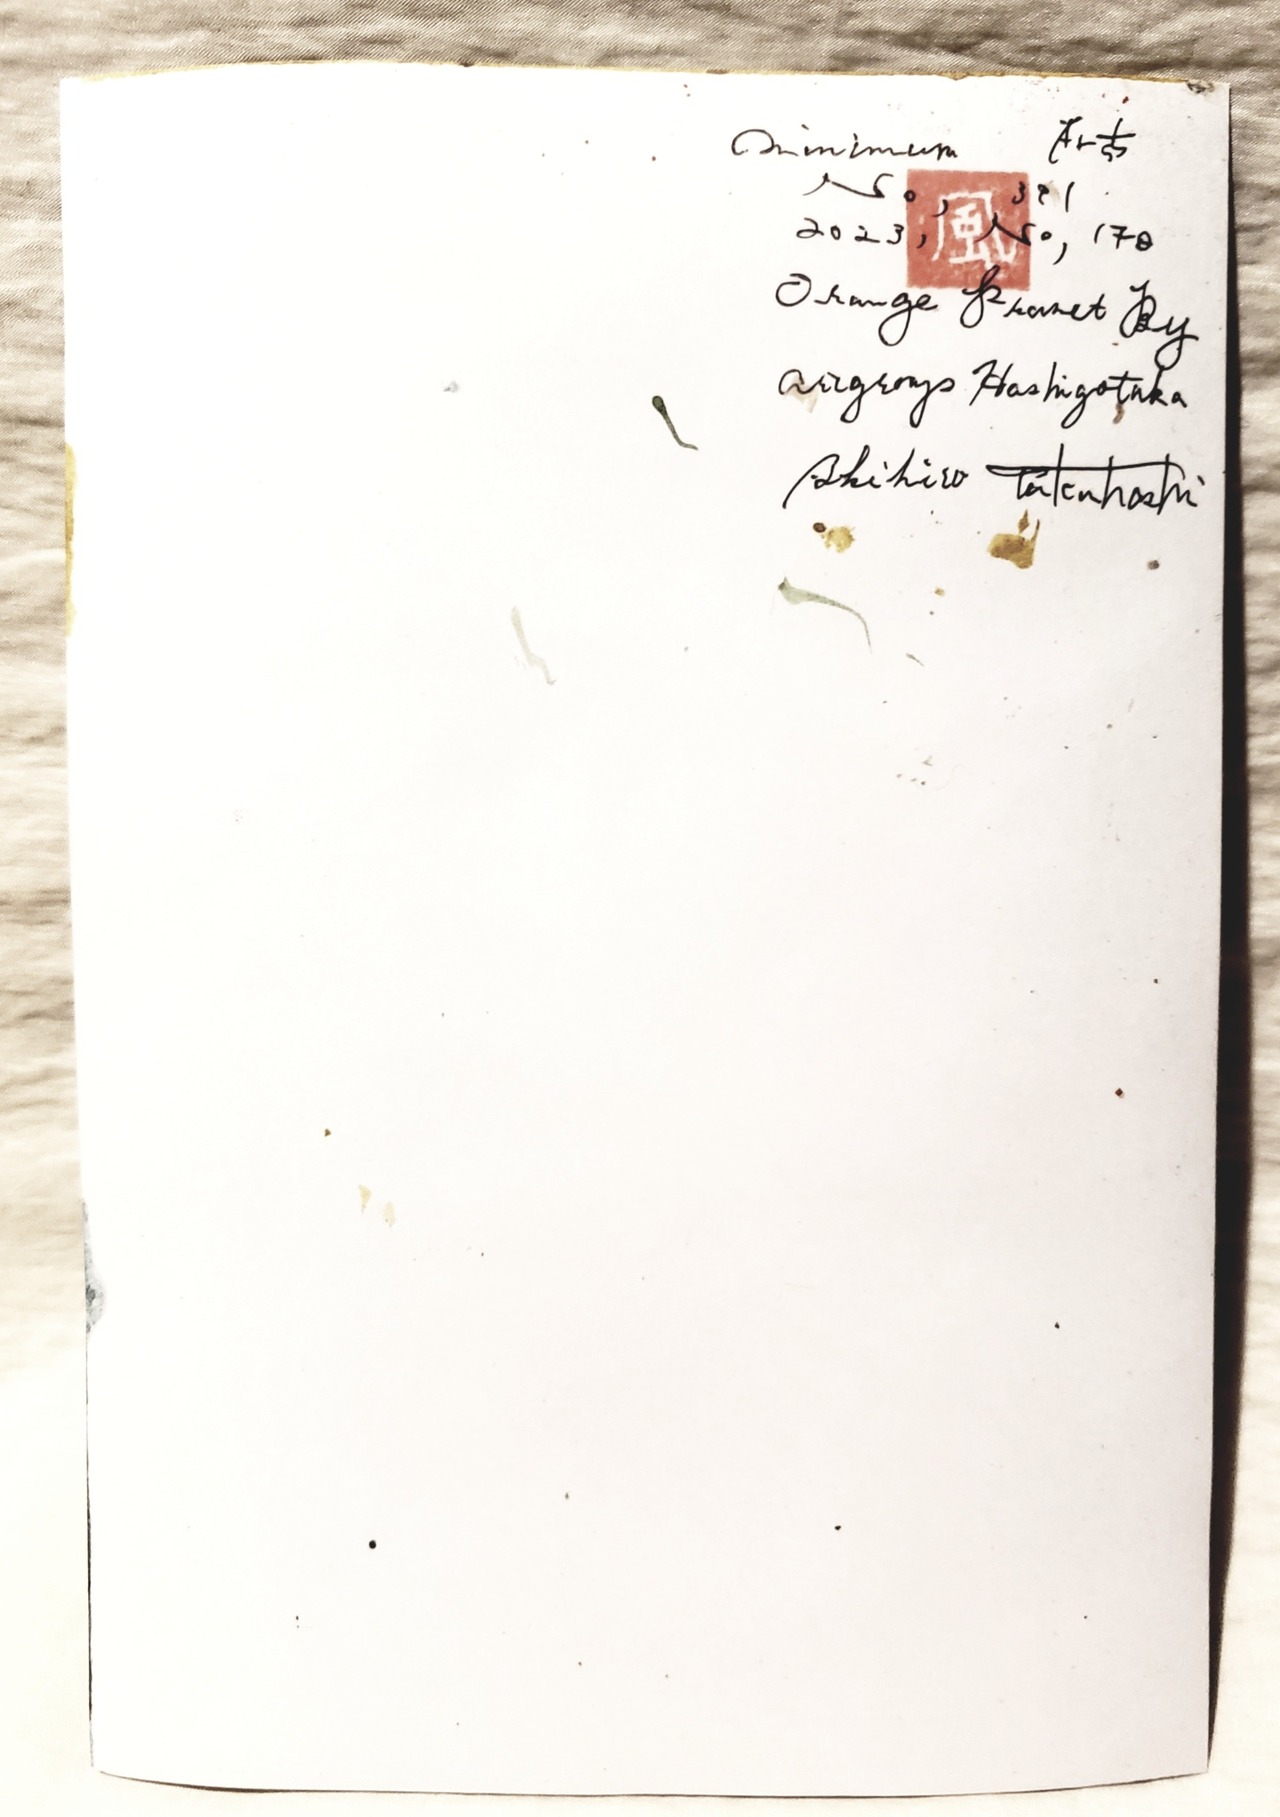 minimum
No, 391
風
2023, No, 178
Orange Planet By
Hashigotaka
Akihiro Takahashi